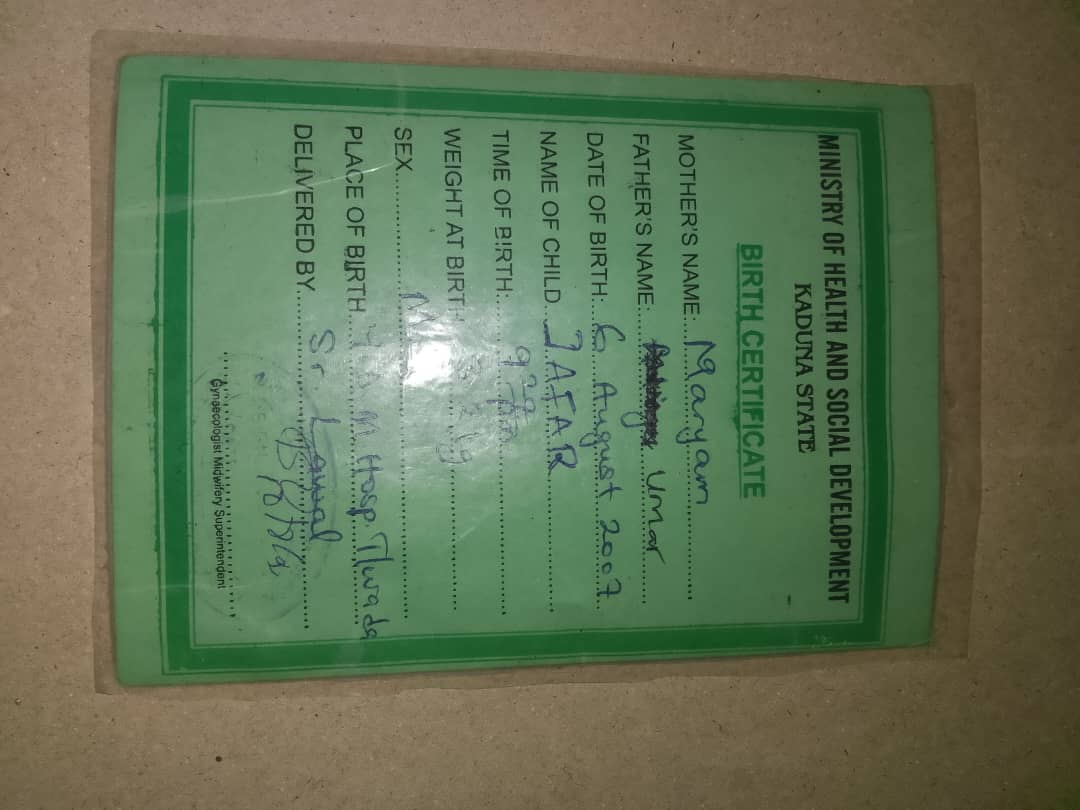 MINISTRY OF HEALTH AND SOCIAL DEVELOPMENT
KADUNA STATE
BIRTH CERTIFICATE
MOTHER'S NAME: Maryam
FATHER'S NAME: Umar
DATE OF BIRTH: 6 August 2007
NAME OF CHILD JAFAR
TIME OF BIRTH: 9 pm
WEIGHT AT BIRTH kg
SEX M
PLACE OF BIRTH Hosp. T/wada
DELIVERED BY Sr Lawal
Gynaecologist Midwifery Superintendent